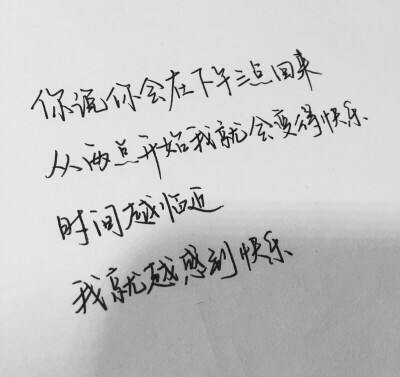 你说你会在下午三点回来
从两点开始我就会变得快乐
时间越临近
我就越感到快乐